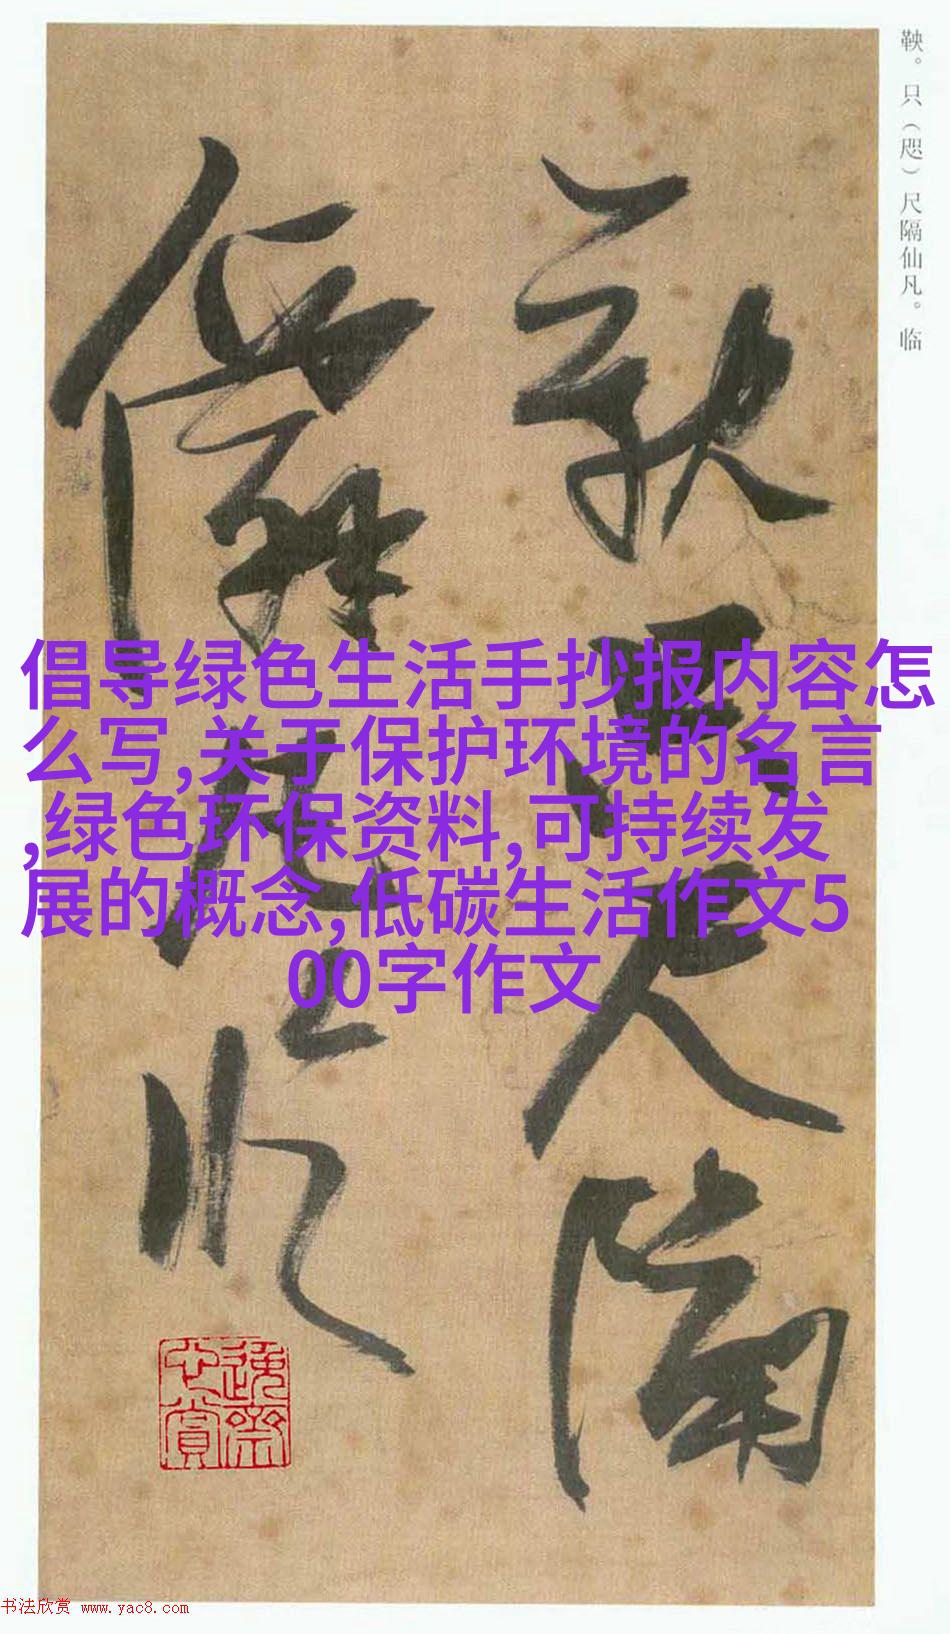 鞅。只（咫）尺隔仙凡。临
鞅只尺隔
僊凡临
倡导绿色生活手抄报内容怎
么写,关于保护环境的名言
,绿色环保资料,可持续发
展的概念,低碳生活作文5
00字作文
书法欣赏 www.yac8.com